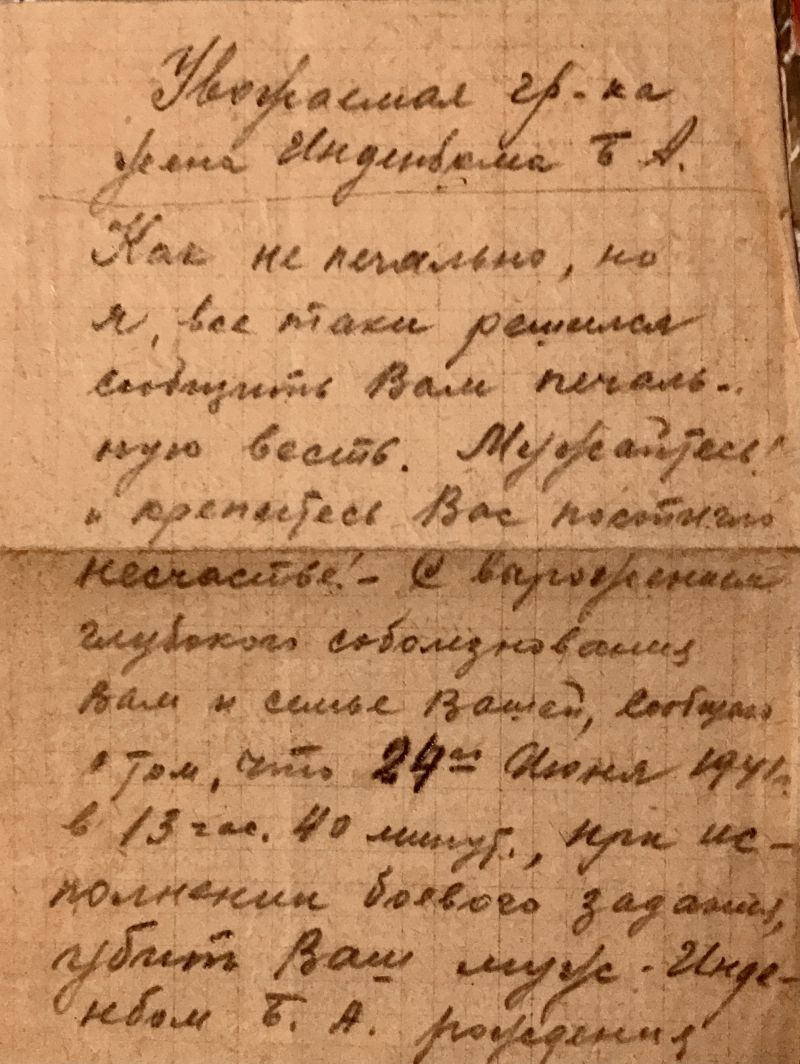 Уважаемая гр-ка
жена Инденбома Б А.
Как не печально, но
я, все таки решился
сообщить Вам печаль-
ную весть. Мужайтесь!
и крепитесь Вас постигло
несчастье! - С выражением
глубокого соболезнования
Вам и семье Вашей, сообщаю
о том, что 24го Июня 1941г.
в 13 час. 40 минут., при ис-
полнении боевого задания,
убит Ваш муж - Инде-
нбом Б. А. рождения